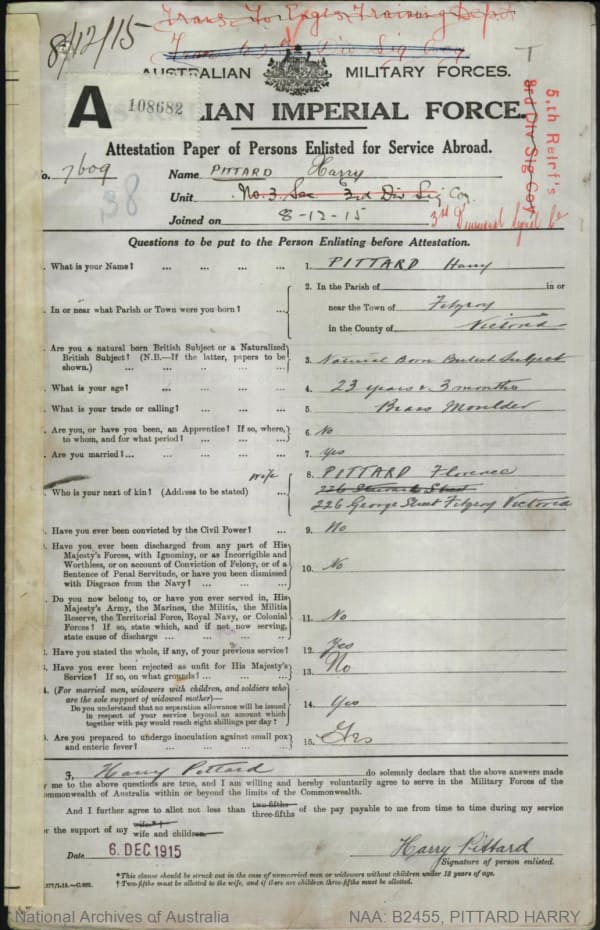 8/12/15
Trans. To Engrs. Training Depot
AUSTRALIAN MILITARY FORCES.
A 108682 LIAN IMPERIAL FORCE.
5.th Reinf's
3rd Div Sig Coy
Attestation Paper of Persons Enlisted for Service Abroad.
o. 7609 Name PITTARD Harry
38
Unit No. 3. Sec 3rd Div Sig Coy.
Joined on 8-12-15
Questions to be put to the Person Enlisting before Attestation.
. What is your Name? ... ... ... ... 1. PITTARD Harry
. In or near what Parish or Town were you born? ...
2. In the Parish of in or
near the Town of Fitzroy
in the County of Victoria
. Are you a natural born British Subject or a Naturalized
British Subject? (N.B.—If the latter, papers to be
shown.) ... ... ... ...
3. Natural Born British Subject
. What is your age? ... ... ... ... 4. 23 years & 3 months
. What is your trade or calling? ... ... ... 5. Brass Moulder
. Are you, or have you been, an Apprentice? If so, where,
to whom, and for what period? ... ... ...
6. No
. Are you married?... ... ... ... 7. Yes
wife
. Who is your next of kin? (Address to be stated) ...
8. PITTARD Florence
226 George Street Fitzroy Victoria
. Have you ever been convicted by the Civil Power? ... 9. No
. Have you ever been discharged from any part of His
Majesty's Forces, with Ignominy, or as Incorrigible and
Worthless, or on account of Conviction of Felony, or of a
Sentence of Penal Servitude, or have you been dismissed
with Disgrace from the Navy? ... ... ...
10. No
. Do you now belong to, or have you ever served in, His
Majesty's Army, the Marines, the Militia, the Militia
Reserve, the Territorial Force, Royal Navy, or Colonial
Forces? If so, state which, and if not now serving,
state cause of discharge ... ... ... ...
11. No
2. Have you stated the whole, if any, of your previous service? 12. Yes
. Have you ever been rejected as unfit for His Majesty's
Service? If so, on what grounds? ... ... ...
13. No
4. (For married men, widowers with children, and soldiers who
are the sole support of widowed mother)—
Do you understand that no separation allowance will be issued
in respect of your service beyond an amount which
together with pay would reach eight shillings per day?
14. Yes
5. Are you prepared to undergo inoculation against small pox
and enteric fever? ... ... ... ...
15. Yes
I, Harry Pittard do solemnly declare that the above answers made
y me to the above questions are true, and I am willing and hereby voluntarily agree to serve in the Military Forces of the
ommonwealth of Australia within or beyond the limits of the Commonwealth.
And I further agree to allot not less than two-fifths three-fifths of the pay payable to me from time to time during my service
or the support of my wife* † wife and children
Date 6. DEC 1915
Harry Pittard
Signature of person enlisted.
* This clause should be struck out in the case of unmarried men or widowers without children under 18 years of age.
† Two-fifths must be allotted to the wife, and if there are children three-fifths must be allotted.
National Archives of Australia
NAA: B2455, PITTARD HARRY